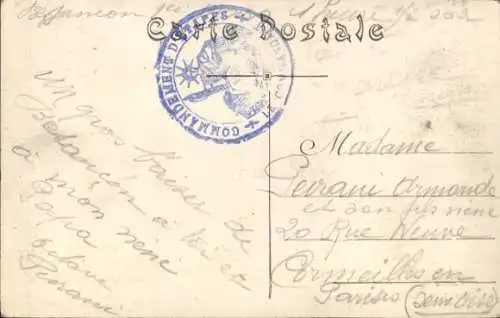 Besançon
Carte Postale
COMMANDEMENT D'ETAPES
un gros baiser de
Besançon à toi et
à mon néné
Papa
Peirani
Madame
Peirani Armonde
et son fils néné
20 Rue Neuve
Cormeilles en
Parisis (Seine Oise)